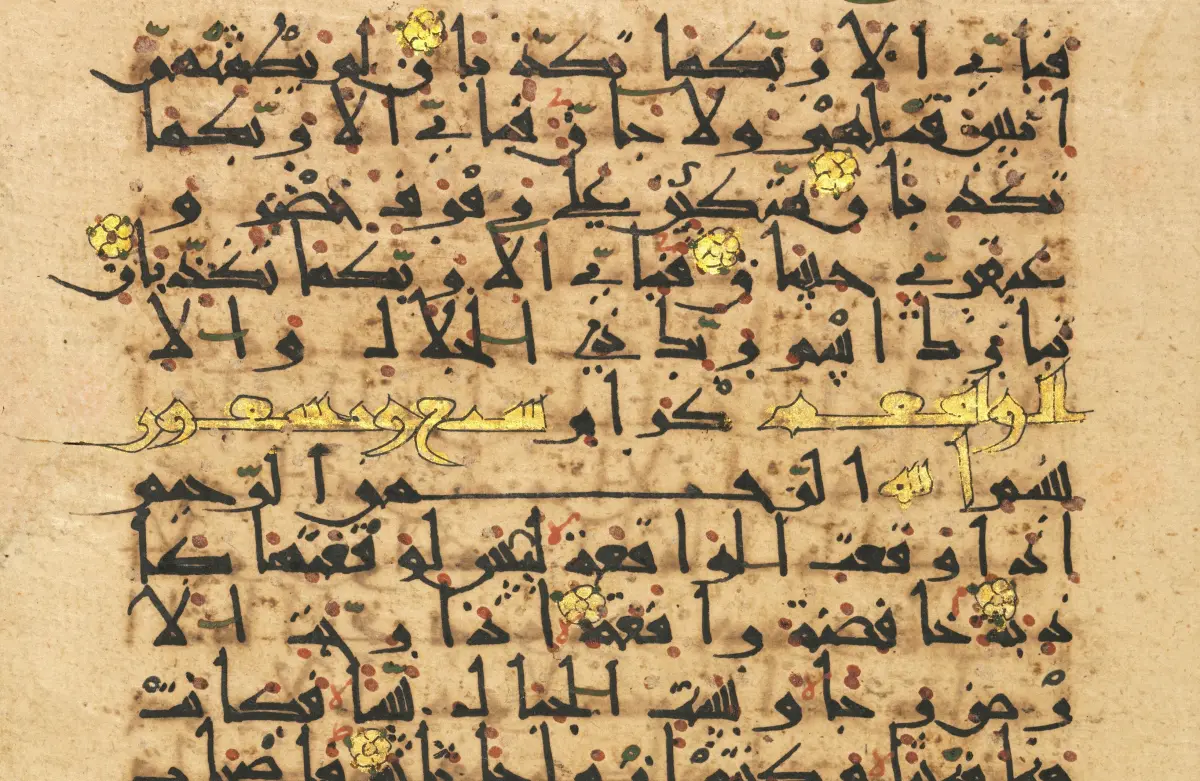 فباي الا ربكما تكذبان لم يطمثهن
انس قبلهم ولا جان فباي الا ربكما
تكذبان متكين على رفرف خضر و
عبقري حسان فباي الا ربكما تكذبان
تبارك اسم ربك ذي الجلال والا
الواقعه كرام سبع وتسعون
بسم الله الرحمن الرحيم
اذا وقعت الواقعة ليس لوقعتها كا
ذبة خافضة رافعة اذا رجت الا
رض رجا وبست الجبال بسا فكانت
هبا منبثا وكنتم ازواجا ثلثة فاصحاب